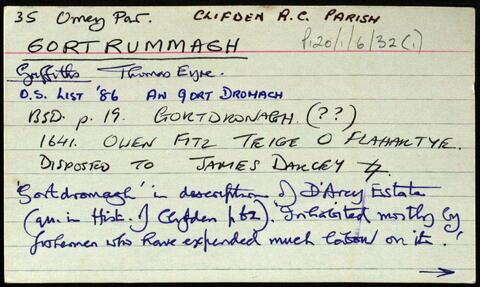 35 Omey Par. CLIFDEN R.C. PARISH
P120/1/6/32(1)
GORTRUMMAGH
Griffiths Thomas Eyre.
O.S. LIST '86 AN GORT DROMACH
BSD. p. 19. GORTDRONAGH. (??)
1641. OWEN FITZ TEIGE O FLAHARTYE.
DISPOSED TO JAMES DARCEY
'Gortdromagh' in description of D'Arcy Estate
(qu. in Hist. of Clifden p62). 'Inhabited mostly by
fishermen who have expended much labour on it.'